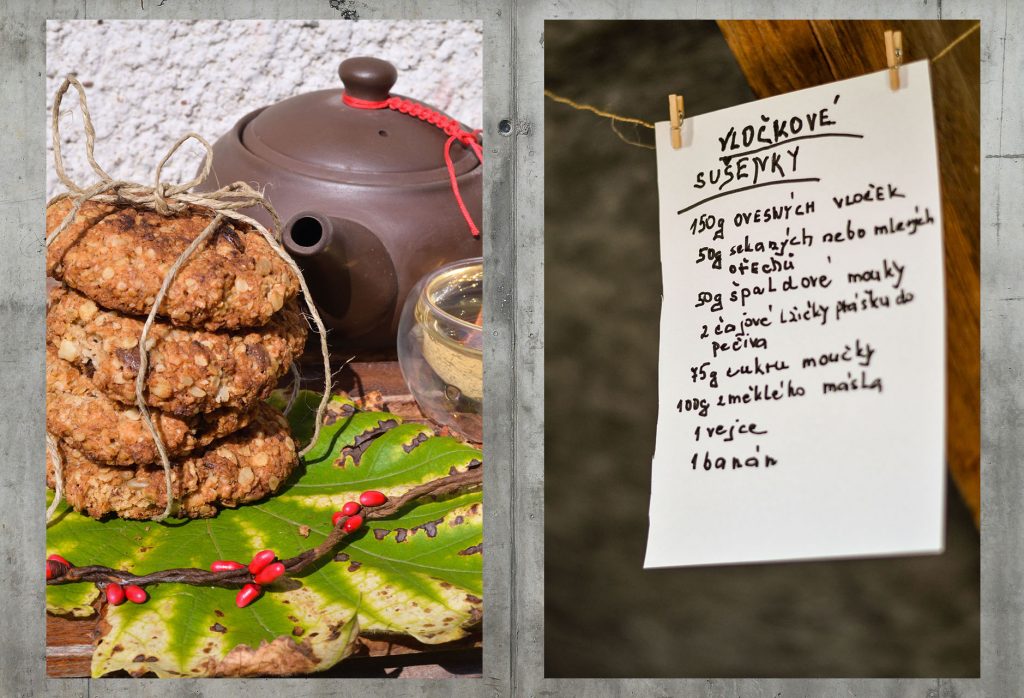 VLOČKOVÉ
SUŠENKY
150g OVESNÝCH VLOČEK
50g sekaných nebo mletých
ořechů
50g špaldové mouky
2 čajové lžičky prášku do
pečiva
75g cukru moučky
100g změklého másla
1 vejce
1 banán